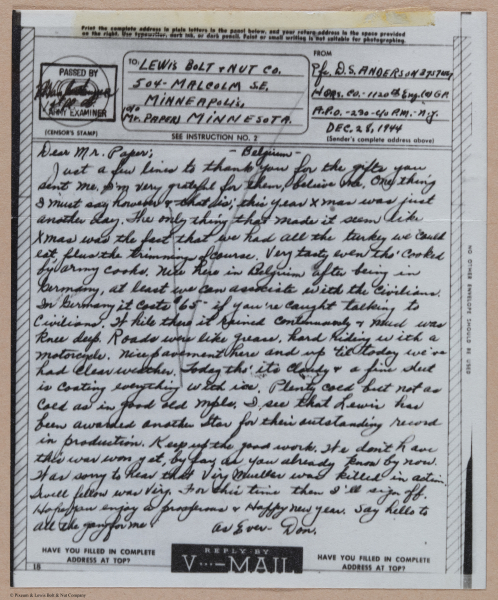 Print the complete address in plain letters in the panel below, and your return address in the space provided
on the right. Use typewriter, dark ink, or dark pencil. Faint or small writing is not suitable for photographing.
PASSED BY
ARMY EXAMINER
(CENSOR'S STAMP)
TO: LEWIS BOLT & NUT CO.
504 - MALCOLM S.E.
MINNEAPOLIS,
c/o
Mr. PAPER; MINNESOTA.
SEE INSTRUCTION NO. 2
FROM
Pfc. D.S. ANDERSON
HQRS. CO. - 1120th Eng. (C) GP.
A.P.O. - 230 - c/o P.M. - N.Y.
DEC. 28, 1944
(Sender's complete address above)
Dear Mr. Paper; - Belgium -
Just a few lines to thank you for the gifts you
sent me. I'm very grateful for them, believe me. One thing
I must say however & that is; this year Xmas was just
another day. The only thing that made it seem like
Xmas was the fact that we had all the turkey we could
eat, plus the trimmings of course. Very tasty even tho' cooked
by army cooks. Nice here in Belgium after being in
Germany, at least we can associate with the civilians.
In Germany it costs $65 if you're caught talking to
civilians. While there it rained continuously & mud was
knee deep. Roads were like grease, hard riding with a
motorcycle. Nice pavement here and up 'til today we've
had clear weather. Today tho' it's cloudy & a fine sleet
is coating everything with ice. Plenty cold but not as
cold as in good old Mpls. I see that Lewis has
been awarded another Star for their outstanding record
in production. Keep up the good work. We don't have
this war won yet, by far, as you already know by now.
Was sorry to hear that Virg Mueller was killed in action.
Swell fellow was Virg. For this time then I'll sign off.
Hope you enjoy a prosperous & Happy New Year. Say hello to
all the gang for me as Ever - Don.
HAVE YOU FILLED IN COMPLETE
ADDRESS AT TOP?
REPLY BY
V···—MAIL
HAVE YOU FILLED IN COMPLETE
ADDRESS AT TOP?
18
NO OTHER ENVELOPE SHOULD BE USED